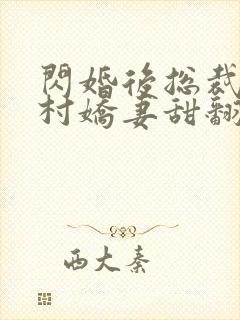 閃婚後总裁
村嬌妻甜翻
西大秦